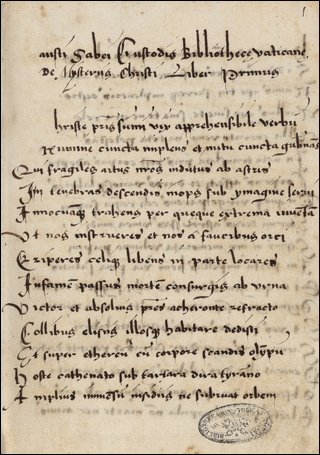 1
austi Sabei Custodis Bibliothecę Vaticanę
De Mysterijs Christi Liber Primus
hriste pris sum vix apprehensibile verbū
numine cuncta implens et nutu cuncta gubnās
Qui fragiles artus nros indutus ab astris
In tenebras descendis inops sub ymagine serui
Innocuāq trahens per quęque extrema iuuētā
Vt nos instrueres et nos a faucibus orci
Eriperes celiq libens in parte locares
Infamē passus mortē consurgis ab vrna
Victor et absoluis pies acheronte refracto
Collibus elisijs illosq habitare dedisti
Et super ethereū cū corpore scandis olȳpū
hoste cathenato sub tartara dira tyrāno
Amplius īmēsū insidijs ne subruat orbem